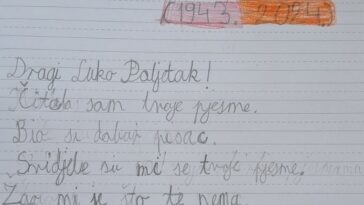 (1943. 2024.
Dragi Luko Paljetak!
Čitala sam tvoje pjesme.
Bio si dobar pisac.
Svidjele su mi se tvoje pjesme.
Žao mi je što te nema